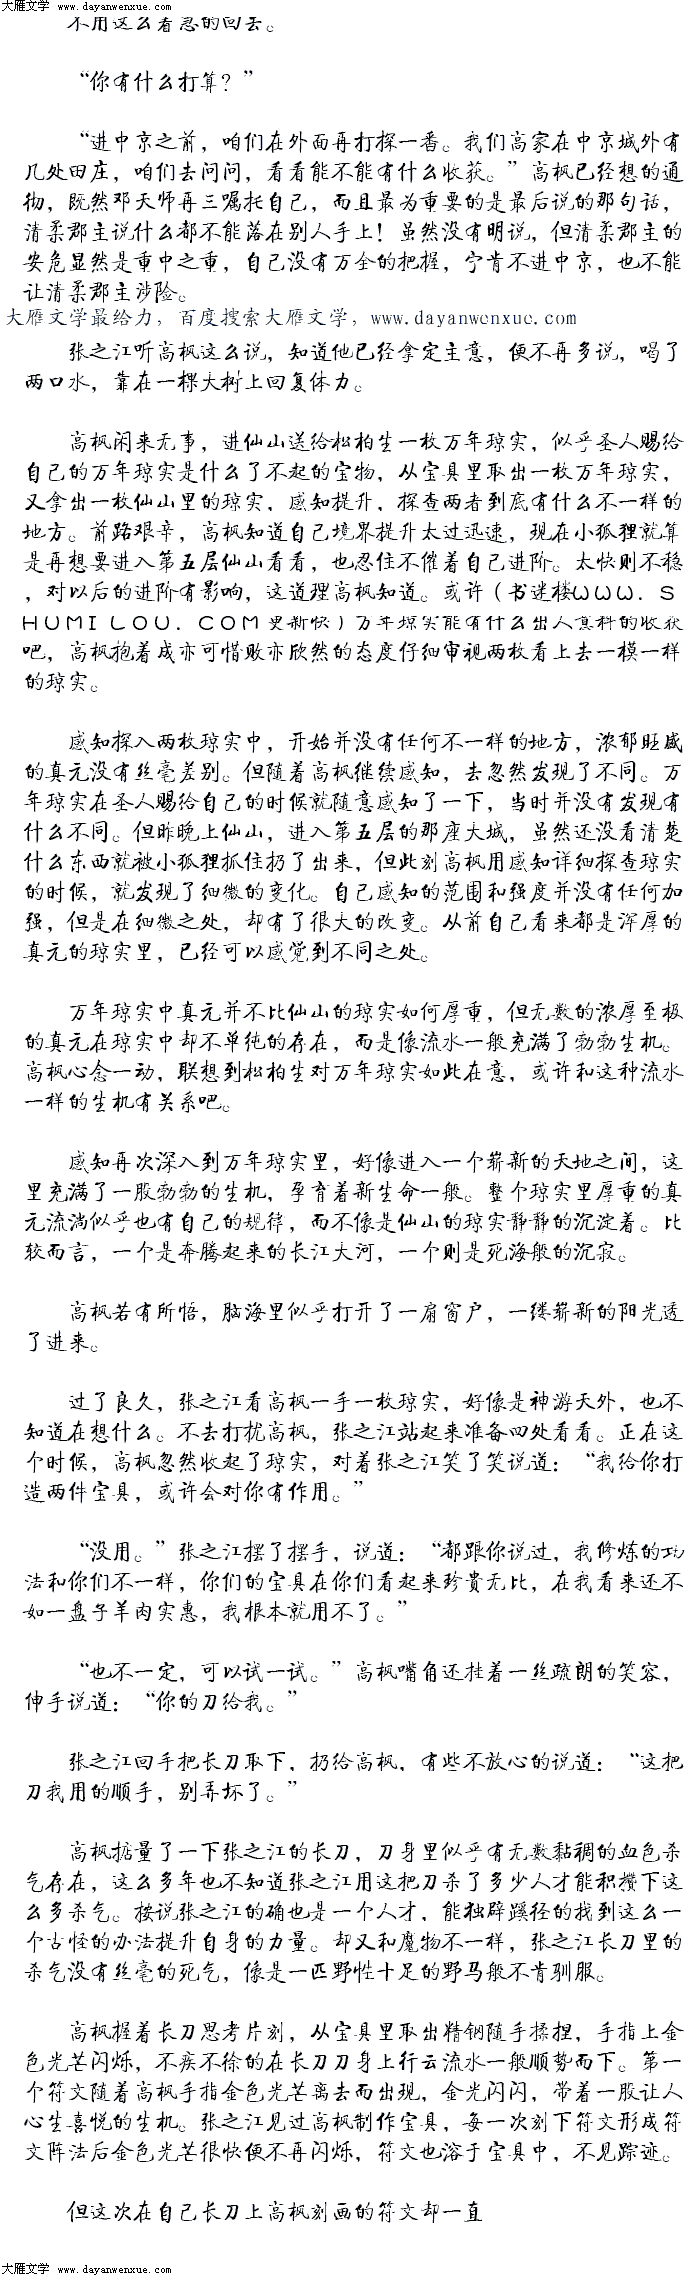 大雁文学 www.dayanwenxue.com
不用这么着急的回去。
“你有什么打算？”
“进中京之前，咱们在外面再打探一番。我们高家在中京城外有
几处田庄，咱们去问问，看看能不能有什么收获。”高枫已经想的通
彻，既然邓天师再三嘱托自己，而且最为重要的是最后说的那句话，
清柔郡主说什么都不能落在别人手上！虽然没有明说，但清柔郡主的
安危显然是重中之重，自己没有万全的把握，宁肯不进中京，也不能
让清柔郡主涉险。
大雁文学最给力，百度搜索大雁文学，www.dayanwenxue.com
张之江听高枫这么说，知道他已经拿定主意，便不再多说，喝了
两口水，靠在一棵大树上回复体力。
高枫闲来无事，进仙山送给松柏生一枚万年琼实，似乎圣人赐给
自己的万年琼实是什么了不起的宝物，从宝具里取出一枚万年琼实，
又拿出一枚仙山里的琼实，感知提升，探查两者到底有什么不一样的
地方。前路艰辛，高枫知道自己境界提升太过迅速，现在小狐狸就算
是再想要进入第五层仙山看看，也忍住不催着自己进阶。太快则不稳
，对以后的进阶有影响，这道理高枫知道。或许（书迷楼WWW．S
HUMILOU．COM更新快）万年琼实能有什么出人意料的收获
吧，高枫抱着成亦可惜败亦欣然的态度仔细审视两枚看上去一模一样
的琼实。
感知探入两枚琼实中，开始并没有任何不一样的地方，浓郁旺盛
的真元没有丝毫差别。但随着高枫继续感知，去忽然发现了不同。万
年琼实在圣人赐给自己的时候就随意感知了一下，当时并没有发现有
什么不同。但昨晚上仙山，进入第五层的那座大城，虽然还没看清楚
什么东西就被小狐狸抓住扔了出来，但此刻高枫用感知详细探查琼实
的时候，就发现了细微的变化。自己感知的范围和强度并没有任何加
强，但是在细微之处，却有了很大的改变。从前自己看来都是浑厚的
真元的琼实里，已经可以感觉到不同之处。
万年琼实中真元并不比仙山的琼实如何厚重，但无数的浓厚至极
的真元在琼实中却不单纯的存在，而是像流水一般充满了勃勃生机。
高枫心念一动，联想到松柏生对万年琼实如此在意，或许和这种流水
一样的生机有关系吧。
感知再次深入到万年琼实里，好像进入一个崭新的天地之间，这
里充满了一股勃勃的生机，孕育着新生命一般。整个琼实里厚重的真
元流淌似乎也有自己的规律，而不像是仙山的琼实静静的沉淀着。比
较而言，一个是奔腾起来的长江大河，一个则是死海般的沉寂。
高枫若有所悟，脑海里似乎打开了一扇窗户，一缕崭新的阳光透
了进来。
过了良久，张之江看高枫一手一枚琼实，好像是神游天外，也不
知道在想什么。不去打扰高枫，张之江站起来准备四处看看。正在这
个时候，高枫忽然收起了琼实，对着张之江笑了笑说道：“我给你打
造两件宝具，或许会对你有作用。”
“没用。”张之江摆了摆手，说道：“都跟你说过，我修炼的功
法和你们不一样，你们的宝具在你们看起来珍贵无比，在我看来还不
如一盘子羊肉实惠，我根本就用不了。”
“也不一定，可以试一试。”高枫嘴角还挂着一丝疏朗的笑容，
伸手说道：“你的刀给我。”
张之江回手把长刀取下，扔给高枫，有些不放心的说道：“这把
刀我用的顺手，别弄坏了。”
高枫掂量了一下张之江的长刀，刀身里似乎有无数黏稠的血色杀
气存在，这么多年也不知道张之江用这把刀杀了多少人才能积攒下这
么多杀气。按说张之江的确也是一个人才，能独辟蹊径的找到这么一
个古怪的办法提升自身的力量。却又和魔物不一样，张之江长刀里的
杀气没有丝毫的死气，像是一匹野性十足的野马般不肯驯服。
高枫握着长刀思考片刻，从宝具里取出精钢随手揉捏，手指上金
色光芒闪烁，不疾不徐的在长刀刀身上行云流水一般顺势而下。第一
个符文随着高枫手指金色光芒离去而出现，金光闪闪，带着一股让人
心生喜悦的生机。张之江见过高枫制作宝具，每一次刻下符文形成符
文阵法后金色光芒很快便不再闪烁，符文也溶于宝具中，不见踪迹。
但这次在自己长刀上高枫刻画的符文却一直
大雁文学 www.dayanwenxue.com